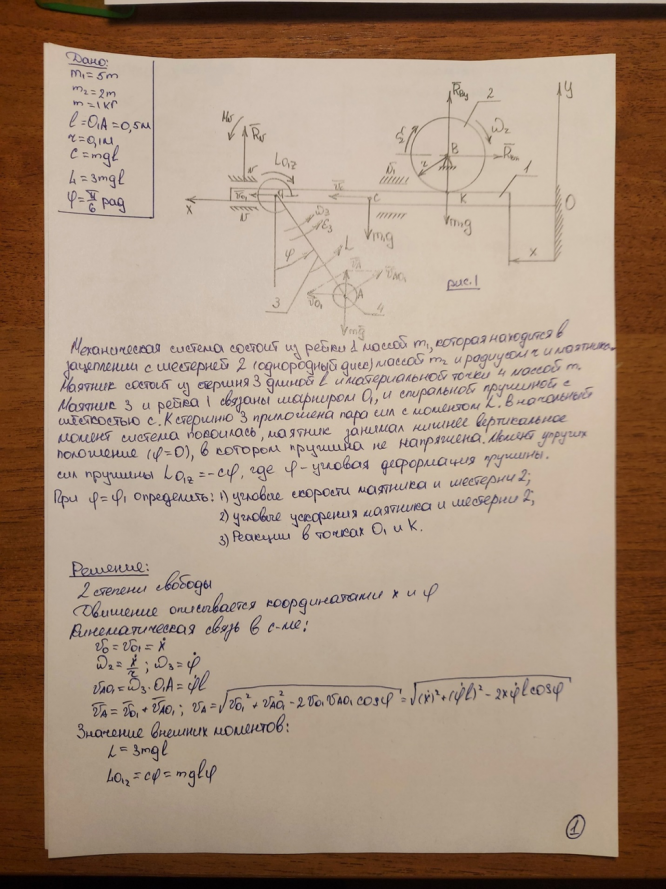 Дано:
m₁ = 5m
m₂ = 2m
m = 1кг
l = O₁A = 0,5м
r = 0,1м
c = mgl
L = 3mgl
φ = π/6 рад
y
2
R̄By
ω₂
ε₂
B
R̄Bx
r
K
1
O
m₁g
x
рис. 1
MN
R̄N
LO₁z
N
v̄O₁
N
x
v̄
C
D₁
m₁g
ω₃
ε₃
φ
L
3
v̄A
v̄AO₁
v̄O₁
A
4
mḡ
Механическая система состоит из рейки 1 массой m₁, которая находится в
зацеплении с шестерней 2 (однородный диск) массой m₂ и радиусом r и маятника.
Маятник состоит из стержня 3 длиной l и материальной точки 4 массой m.
Маятник 3 и рейка 1 связаны шарниром O₁ и спиральной пружиной с
жёсткостью c. К стержню 3 приложена пара сил с моментом L. В начальный
момент система покоилась, маятник занимал нижнее вертикальное
положение (φ=0), в котором пружина не напряжена. Момент упругих
сил пружины LO₁z = -cφ, где φ - угловая деформация пружины.
При φ = φ₁ определить: 1) угловые скорости маятника и шестерни 2;
2) угловые ускорения маятника и шестерни 2;
3) Реакции в точках O₁ и K.
Решение:
2 степени свободы
Движение описывается координатами x и φ
Кинематическая связь в с-ме:
v̄O = v̄O₁ = ẋ
ω₂ = ẋ/r ; ω₃ = φ̇
vAO₁ = ω₃·O₁A = φ̇l
v̄A = v̄O₁ + v̄AO₁ ; vA = √(vO₁² + vAO₁² - 2vO₁vAO₁cosφ) = √((ẋ)² + (φ̇l)² - 2ẋφ̇lcosφ)
Значение внешних моментов:
L = 3mgl
LO₁z = cφ = mglφ
1